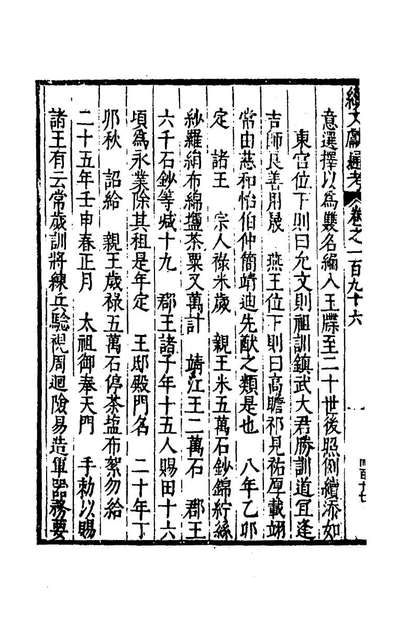 續文獻通考 卷之一百九十六
意選擇以爲雙名編入玉牒至二十世後照例續添如
東宮位下則曰允文則祖訓欽武大君勝訓道宜逢
吉師良善用晟 燕王位下則曰高瞻祁見祐厚載翊
常由慈和怡伯仲簡靖迪先猷之類是也 八年乙卯
定 諸王 宗人祿米歲 親王米五萬石鈔錦紵絲
紗羅絹布綿鹽茶粟又萬計 靖江王二萬石 郡王
六千石鈔等減十九 郡王諸子年十五人賜田十六
頃爲永業除其租是年定 王邸殿門名 二十年丁
卯秋 詔給 親王歲祿五萬石停茶鹽布絮勿給
二十五年壬申春正月 太祖御奉天門 手勑以賜
諸王有云常歲訓將練兵驗視周迴險易造軍器務要